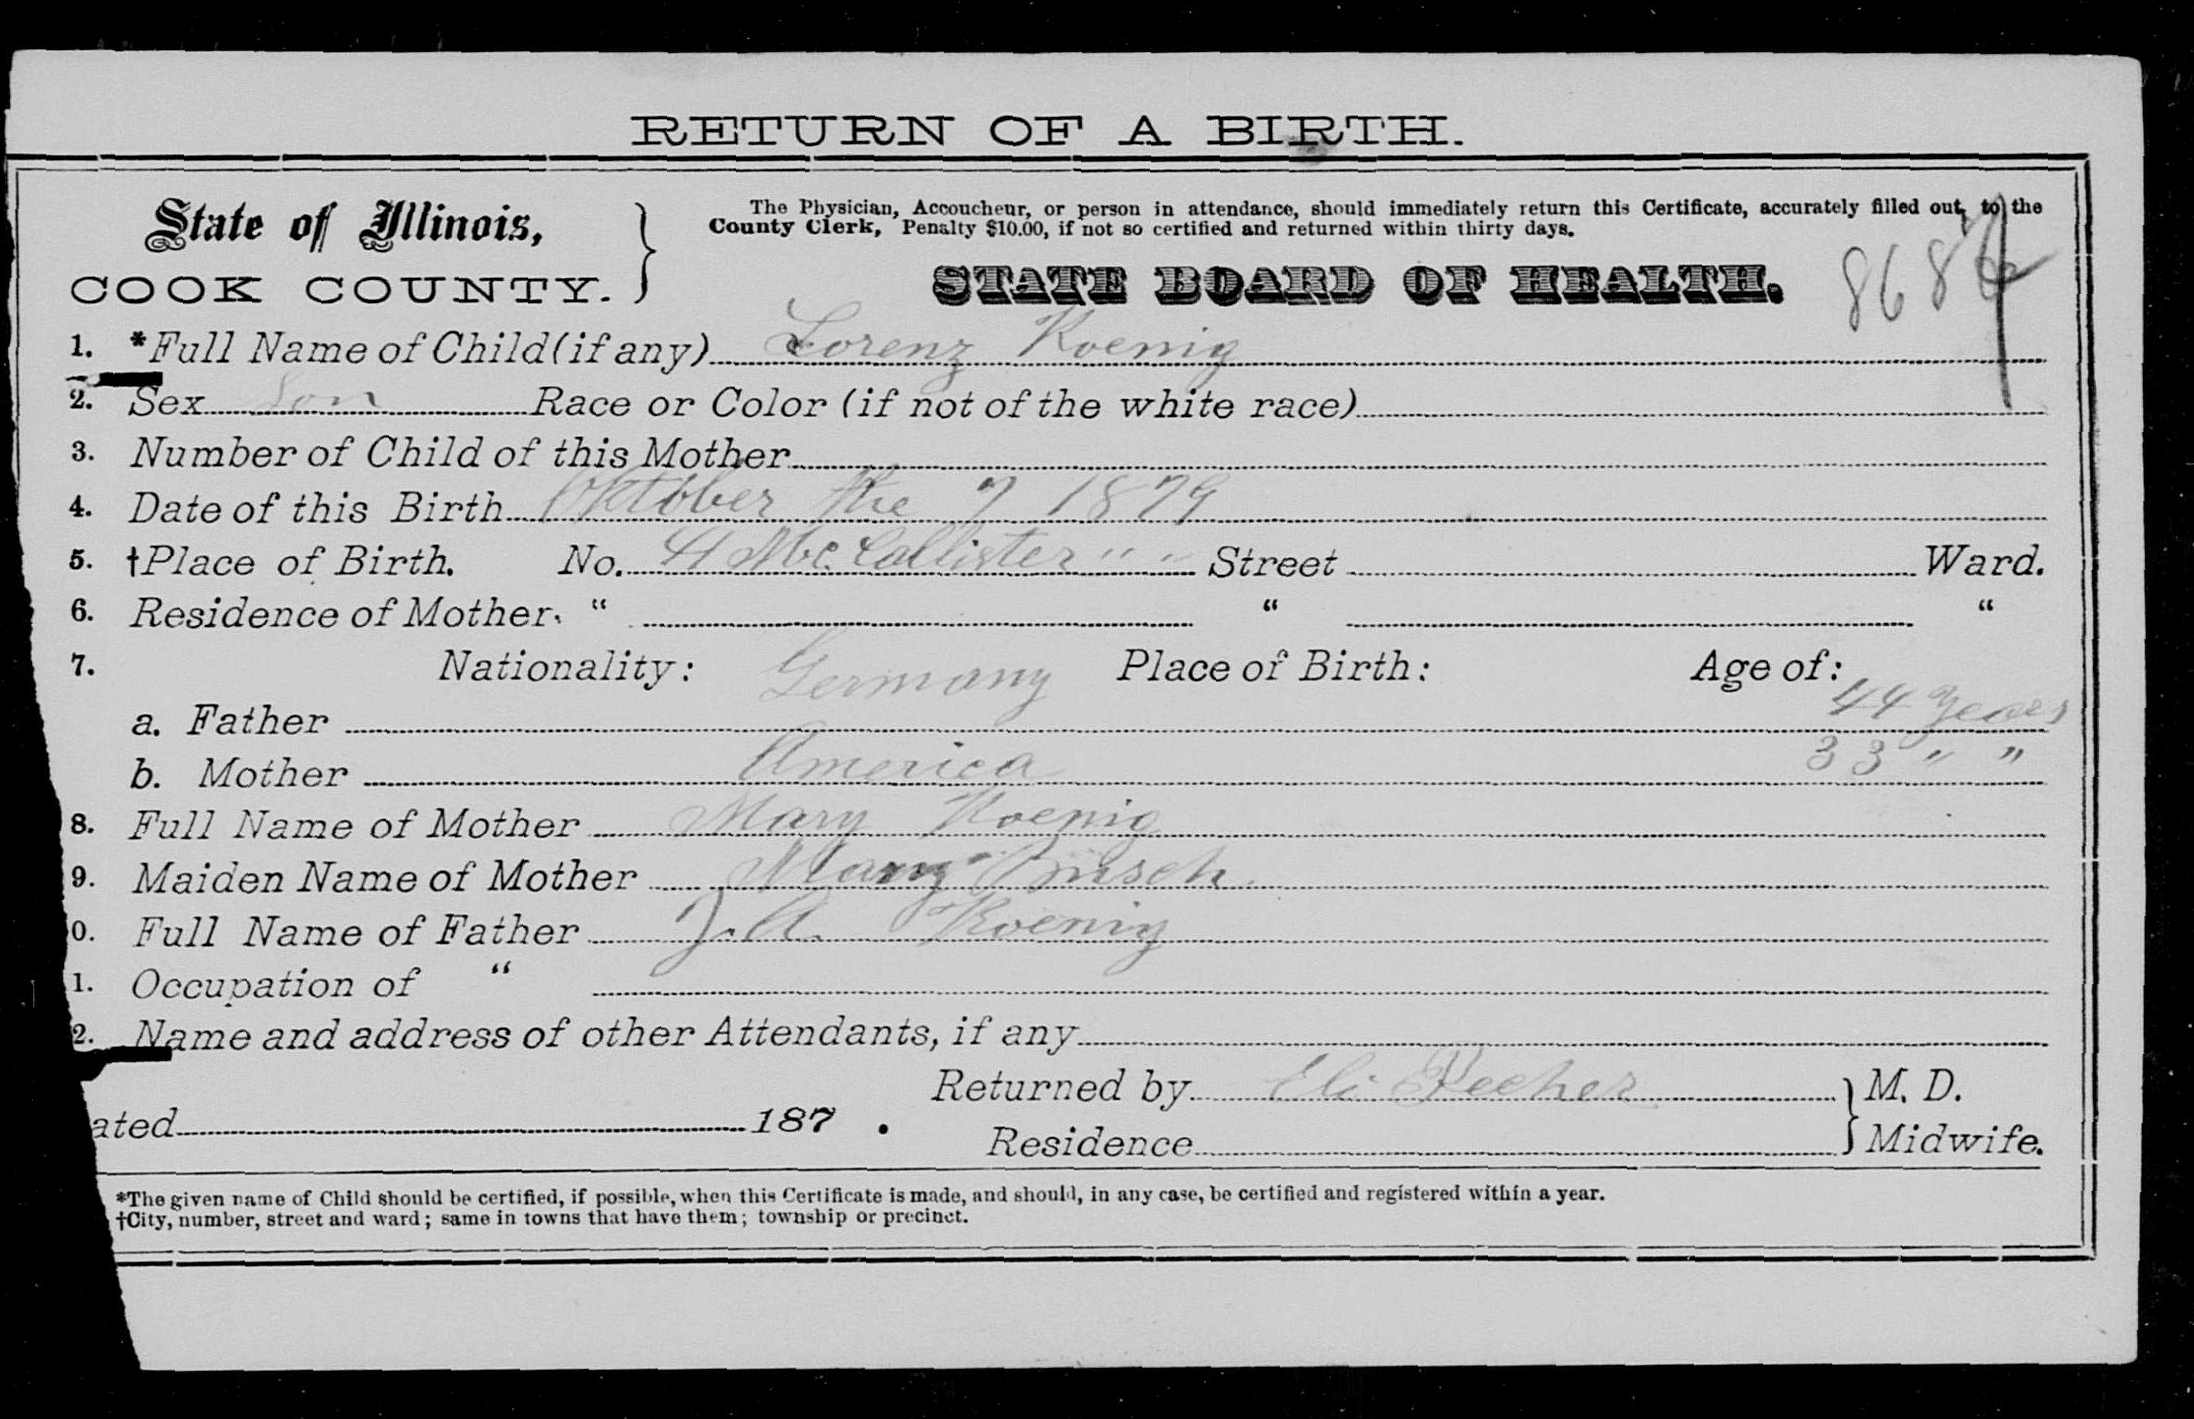 RETURN OF A BIRTH.
State of Illinois,
COOK COUNTY.
The Physician, Accoucheur, or person in attendance, should immediately return this Certificate, accurately filled out, to the
County Clerk, Penalty $10.00, if not so certified and returned within thirty days.
STATE BOARD OF HEALTH.
868
1. *Full Name of Child (if any) Lorenz Koenig
2. Sex Son Race or Color (if not of the white race)
3. Number of Child of this Mother
4. Date of this Birth Oktober the 7 1879
5. †Place of Birth. No. 41 Mc. Collister " " Street Ward.
6. Residence of Mother. " " "
7. Nationality: Place of Birth: Age of:
a. Father Germany 44 Years
b. Mother America 33 " "
8. Full Name of Mother Mary Koenig
9. Maiden Name of Mother Mary
0. Full Name of Father J. A. Koenig
1. Occupation of "
2. Name and address of other Attendants, if any
Returned by Eli M. D.
ated 187 .
Residence Midwife.
*The given name of Child should be certified, if possible, when this Certificate is made, and should, in any case, be certified and registered within a year.
†City, number, street and ward; same in towns that have them; township or precinct.